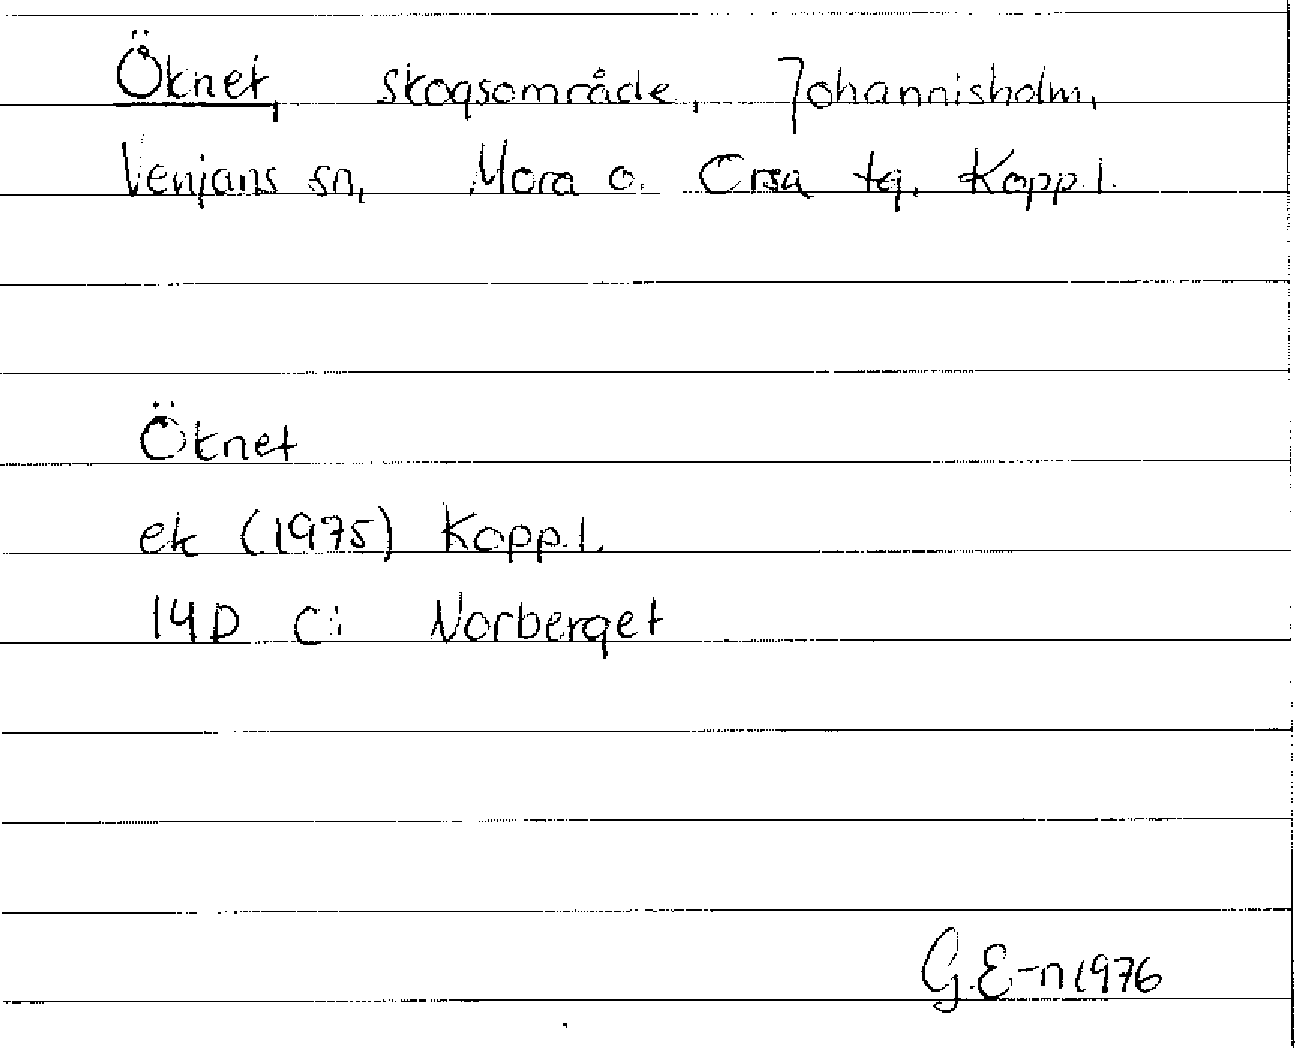 Öknet, skogsområde, Johannisholm,
Venjans sn, Mora o. Orsa tg. Kopp.l.
Öknet
ek (1975) Kopp.l.
14D Ci Norberget
G.E-n 1976